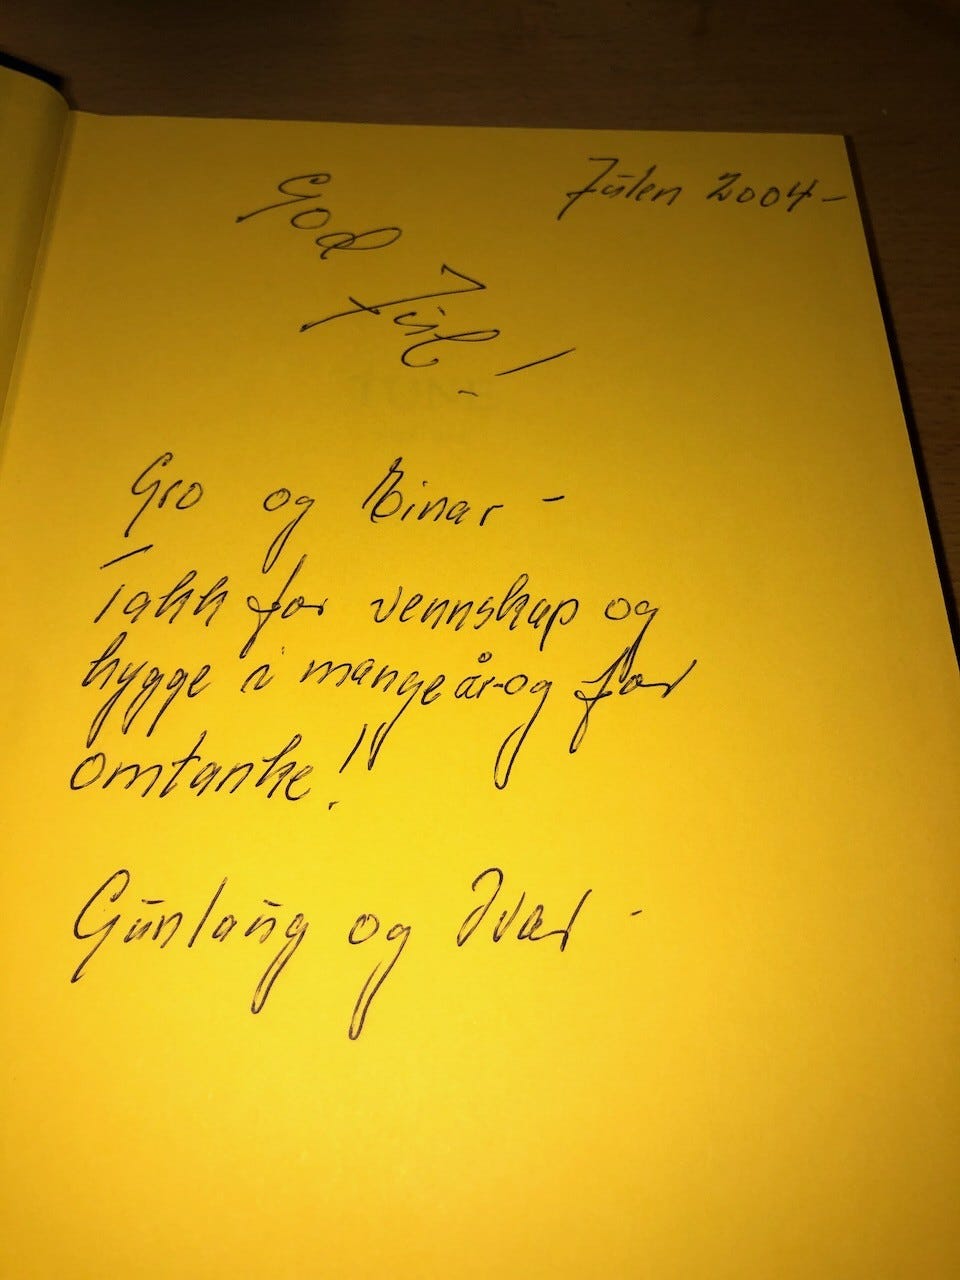 Julen 2004-
God
Jul!
Gro og Einar -
Takk for vennskap og
hygge i mange år-og for
omtanke!!
Gunlaug og Ivar -